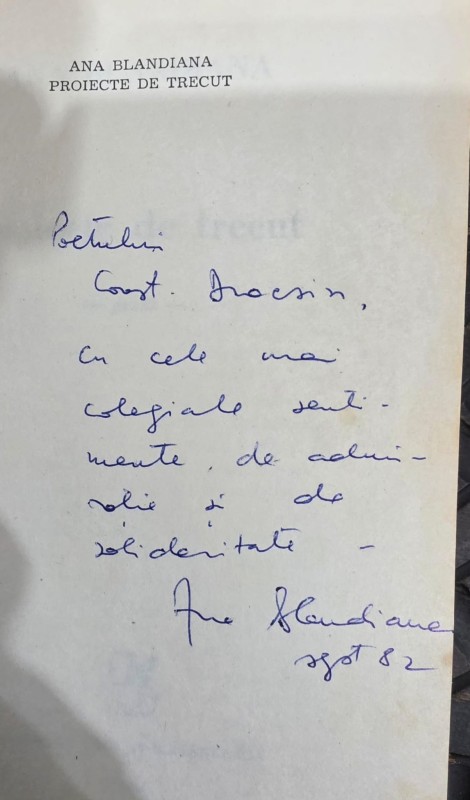 ANA BLANDIANA
PROIECTE DE TRECUT
Poetului
Const. Dracsin,
cu cele mai
colegiale senti-
mente, de admi-
rație și de
solidaritate –
Ana Blandiana
sept 82